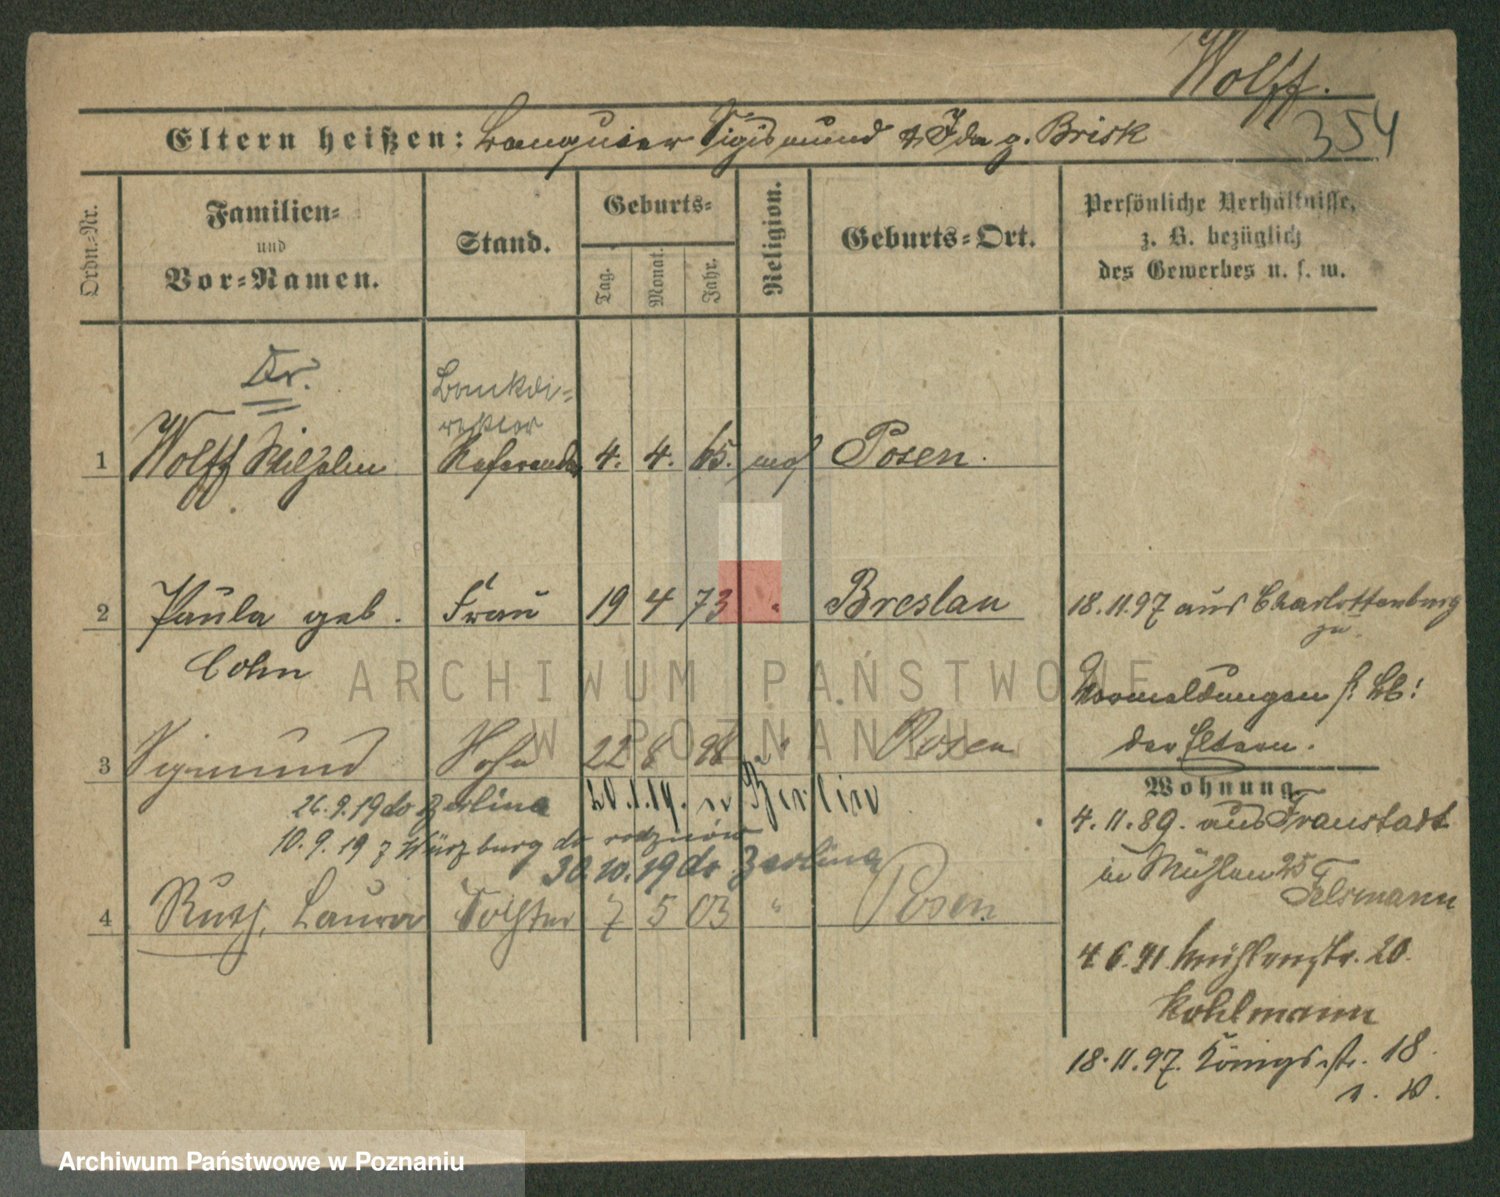 Wolff.
354
Eltern heißen: Banquier Sigismund & Ida g. Brisk
Ordn.-Nr.
Familien-
und
Vor-Namen.
Stand.
Geburts-
Tag.
Monat.
Jahr.
Religion.
Geburts-Ort.
Persönliche Verhältnisse,
z. B. bezüglich
des Gewerbes u. s. w.
Dr.
Bankdi-
rektor
1 Wolff Wilhelm Referendar 4. 4. 65. mos Posen.
2 Paula geb. Frau 19 4 73 " Breslau 18.11.97 aus Charlottenburg
zu
Cohn
Vormeldungen
der Eltern.
3 Sigmund Sohn 22 8 98 " Posen
Wohnung
26.9.19 do Berlina 20.1.19. n Berlin
10.9.19 z Würzburg do rodziców
30.10.19 do Berlina
4.11.89. aus Fraustadt
in Mühlen 25
Felsmann
4 Ruth, Laura Tochter 7 5 03 " Posen
4.6.91. Mühlenstr. 20.
Kohlmann
18.11.97. Königsstr. 18.
ARCHIWUM PAŃSTWOWE
W POZNANIU
Archiwum Państwowe w Poznaniu